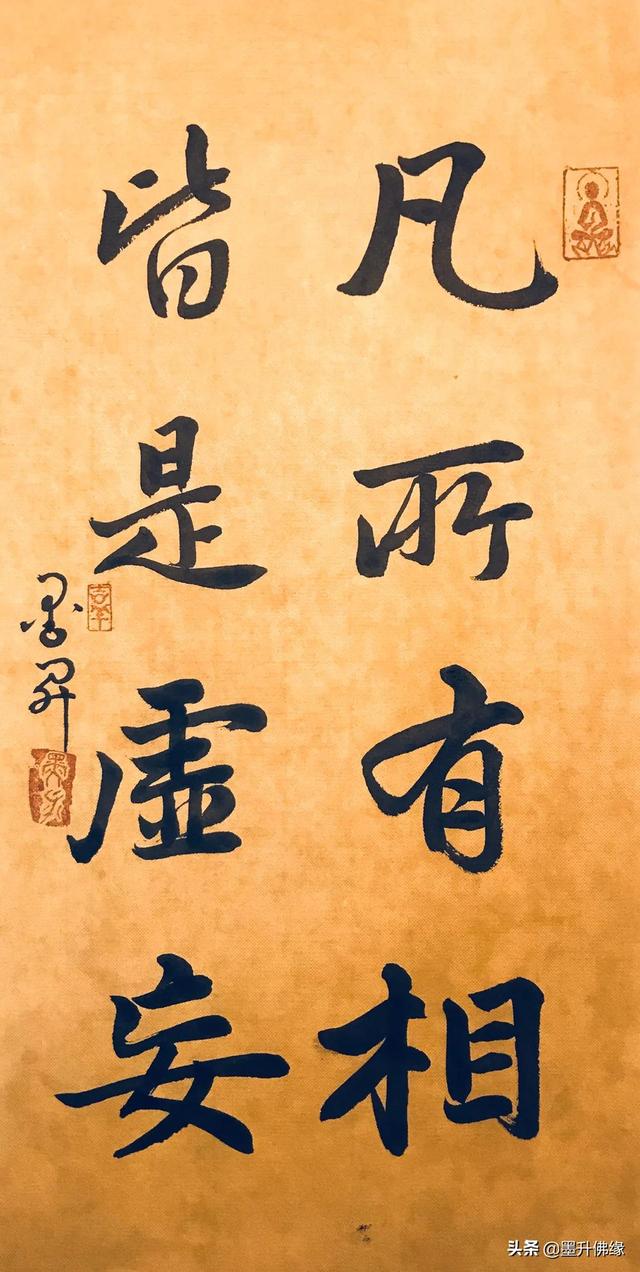 凡所有相
皆是虚妄
墨昇
头条 @墨升佛缘